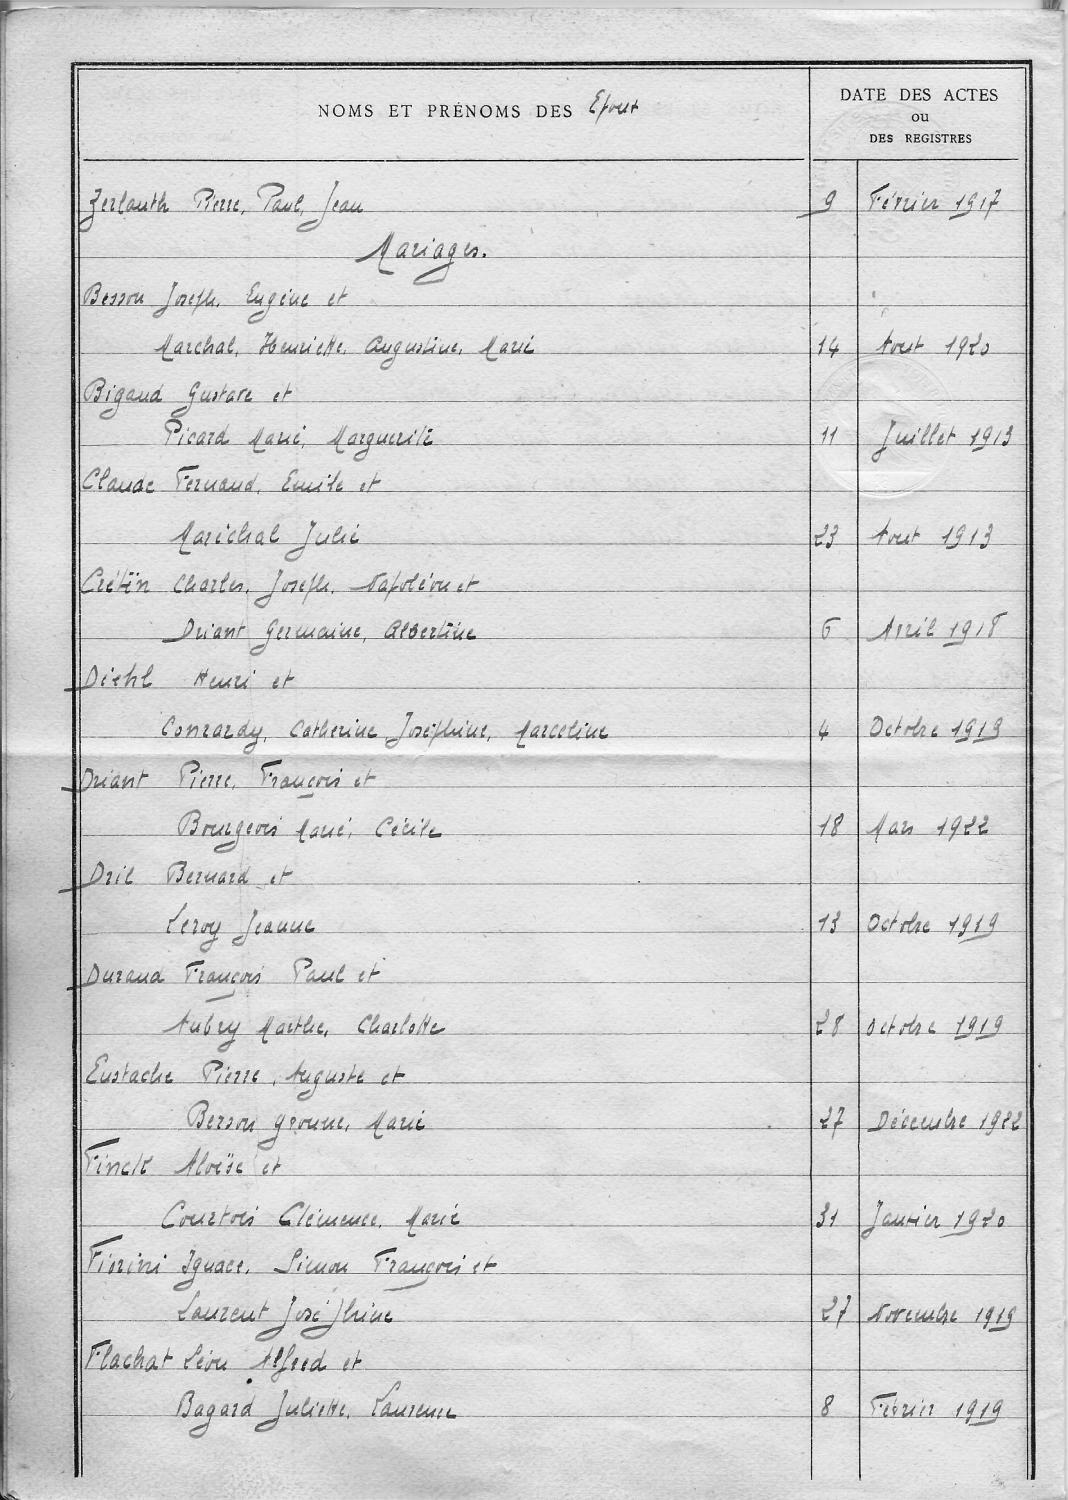 NOMS ET PRÉNOMS DES Epoux
DATE DES ACTES
ou
DES REGISTRES
Zerlauth Pierre, Paul, Jean 9 Février 1917
Mariages.
Besson Joseph, Eugène et
Marchal, Henriette, Augustine, Marie 14 Aout 1920
Bigaud Gustave et
Picard Marie, Marguerite 11 Juillet 1913
Claude Fernand, Emile et
Maréchal Julie 23 Aout 1913
Crétin Charles, Joseph, Napoléon et
Driant Germaine, Albertine 6 Avril 1918
Diehl Henri et
Conrardy, Catherine Joséphine, Marceline 4 Octobre 1919
Driant Pierre, François et
Bourgeois Marie, Cécile 18 Mars 1922
Dril Bernard et
Leroy Jeanne 13 Octobre 1919
Durand François Paul et
Aubry Marthe, Charlotte 28 Octobre 1919
Eustache Pierre, Auguste et
Berson Marie 27 Décembre 1922
Finck Aloïse et
Courtois Clémence, Marie 31 Janvier 1920
Fiorini Ignace, Simon François et
Laurent Joséphine 27 Novembre 1919
Flachat Léon Alfred et
Bagard Juliette, Laurence 8 Février 1919